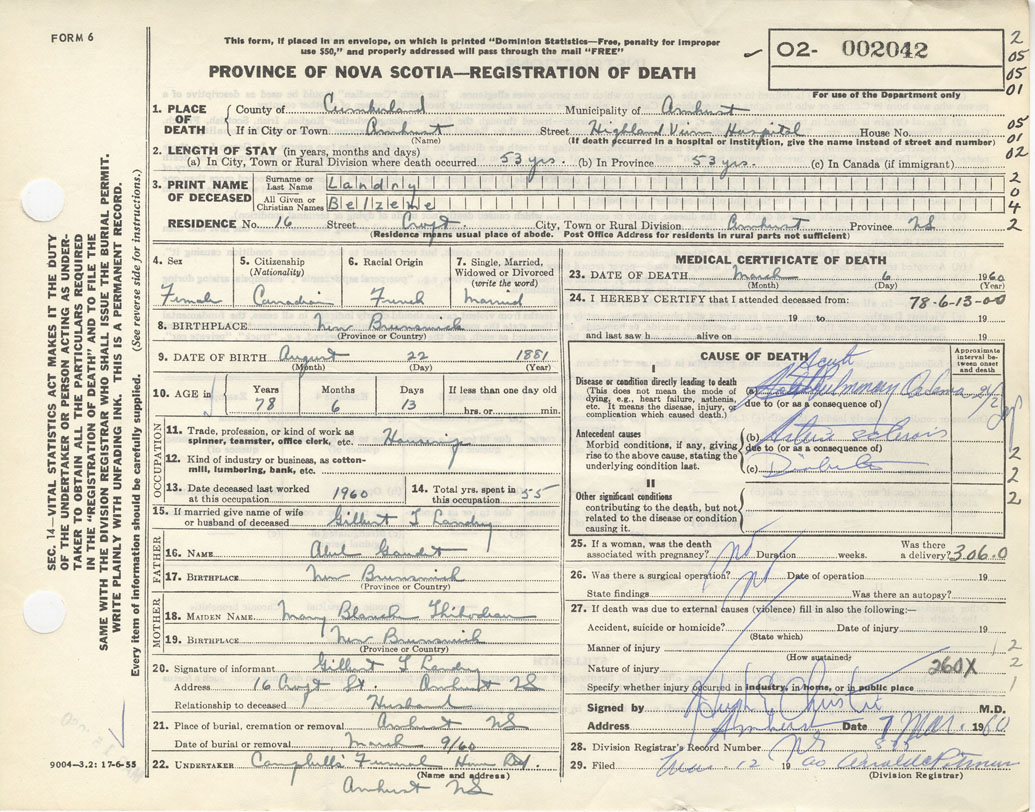 FORM 6
This form, if placed in an envelope, on which is printed "Dominion Statistics—Free, penalty for improper
use $50," and properly addressed will pass through the mail "FREE"
02- 002042
For use of the Department only
2
05
05
01
05
01
02
2
0
4
2
PROVINCE OF NOVA SCOTIA—REGISTRATION OF DEATH
1. PLACE OF DEATH { County of Cumberland Municipality of Amherst
If in City or Town Amherst Street Highland View Hospital House No.
(Name) (If death occurred in a hospital or institution, give the name instead of street and number)
2. LENGTH OF STAY (in years, months and days)
(a) In City, Town or Rural Division where death occurred 53 yrs. (b) In Province 53 yrs. (c) In Canada (if immigrant)
3. PRINT NAME OF DECEASED { Surname or Last Name Landry
All Given or Christian Names Belzeme
RESIDENCE No. 16 Street Croft City, Town or Rural Division Amherst Province NS
(Residence means usual place of abode. Post Office Address for residents in rural parts not sufficient)
4. Sex Female
5. Citizenship (Nationality) Canadian
6. Racial Origin French
7. Single, Married, Widowed or Divorced (write the word) Married
8. BIRTHPLACE New Brunswick
(Province or Country)
9. DATE OF BIRTH August 22 1881
(Month) (Day) (Year)
10. AGE in Years 78 Months 6 Days 13 If less than one day old hrs. or min.
OCCUPATION
11. Trade, profession, or kind of work as spinner, teamster, office clerk, etc. Housewife
12. Kind of industry or business, as cotton-mill, lumbering, bank, etc.
13. Date deceased last worked at this occupation 1960
14. Total yrs. spent in this occupation 55
15. If married give name of wife or husband of deceased Gilbert T Landry
FATHER
16. NAME Abel Gaudet
17. BIRTHPLACE New Brunswick
(Province or Country)
MOTHER
18. MAIDEN NAME Mary Blanch Thibodeau
19. BIRTHPLACE New Brunswick
(Province or Country)
20. Signature of informant Gilbert T Landry
Address 16 Croft St. Amherst NS
Relationship to deceased Husband
21. Place of burial, cremation or removal Amherst NS
Date of burial or removal March 9/60
22. UNDERTAKER Campbell's Funeral Home Ltd.
(Name and address)
Amherst NS
MEDICAL CERTIFICATE OF DEATH
23. DATE OF DEATH March 6 1960
(Month) (Day) (Year)
24. I HEREBY CERTIFY that I attended deceased from: 78-6-13-00
19 to 19
and last saw h alive on 19
CAUSE OF DEATH
Approximate interval between onset and death
I
Disease or condition directly leading to death
(This does not mean the mode of dying, e.g., heart failure, asthenia, etc. It means the disease, injury, or complication which caused death.)
Acute
(a) Pulmonary Oedema
due to (or as a consequence of)
Antecedent causes
Morbid conditions, if any, giving rise to the above cause, stating the underlying condition last.
(b)
due to (or as a consequence of)
(c) Diabetes
2
2
2
II
Other significant conditions
contributing to the death, but not related to the disease or condition causing it.
25. If a woman, was the death associated with pregnancy? no Duration weeks. Was there a delivery? 306.0
26. Was there a surgical operation? no Date of operation 19
State findings Was there an autopsy?
27. If death was due to external causes (violence) fill in also the following:—
Accident, suicide or homicide? Date of injury 19
(State which)
Manner of injury
(How sustained)
Nature of injury 260X
1 2
2
1
Specify whether injury occurred in industry, in home, or in public place
Signed by M.D.
Address Amherst Date 7 Mar. 1960
28. Division Registrar's Record Number
29. Filed Mar. 12 1960
(Division Registrar)
SEC. 14—VITAL STATISTICS ACT MAKES IT THE DUTY
OF THE UNDERTAKER OR PERSON ACTING AS UNDER-
TAKER TO OBTAIN ALL THE PARTICULARS REQUIRED
IN THE "REGISTRATION OF DEATH" AND TO FILE THE
SAME WITH THE DIVISION REGISTRAR WHO SHALL ISSUE THE BURIAL PERMIT.
WRITE PLAINLY WITH UNFADING INK. THIS IS A PERMANENT RECORD.
Every item of information should be carefully supplied. (See reverse side for instructions.)
9004—3.2: 17-6-55